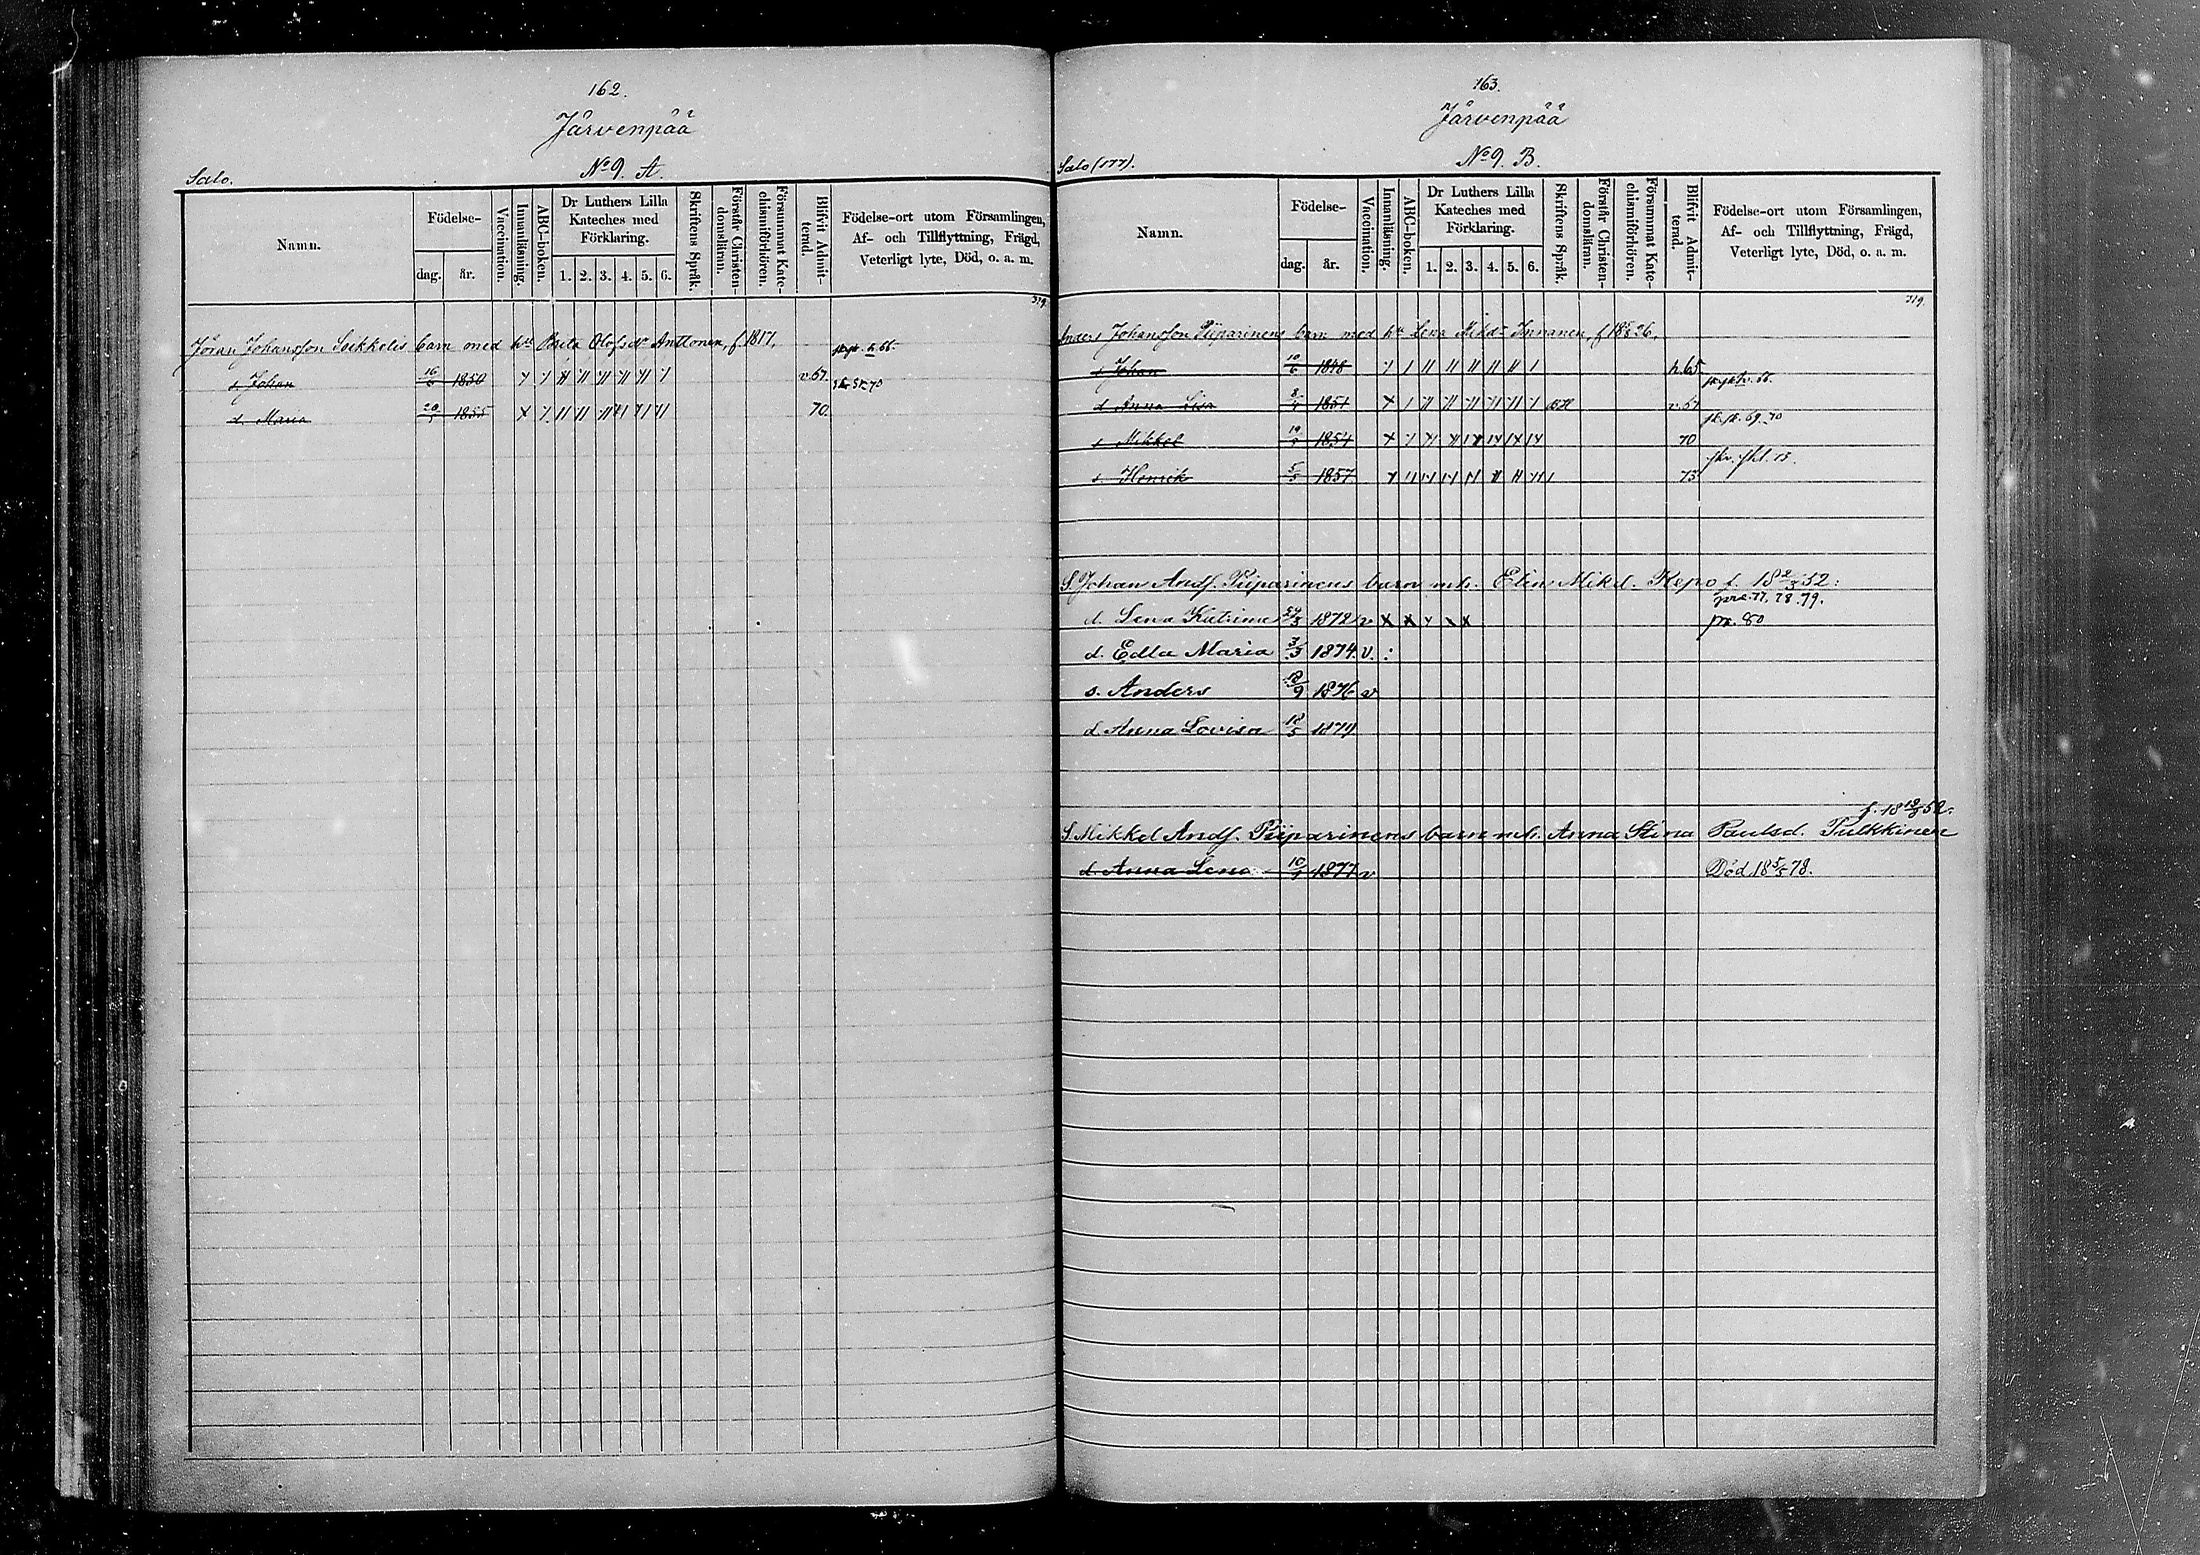 162.
Järvenpää
Salo.
No 9. A
Namn.
Födelse-
dag.
år.
Vaccination.
Innanläsning.
ABC-boken.
Dr Luthers Lilla
Kateches med
Förklaring.
1. 2. 3. 4. 5. 6.
Skriftens Språk.
Förstår Christen-
domsläran.
Försummat Kate-
chismiförhören.
Blifvit Admit-
terad.
Födelse-ort utom Församlingen,
Af- och Tillflyttning, Frägd,
Veterligt lyte, Död, o. a. m.
319.
Jöran Johansson Soikkelis barn med hu Brita Olofsdr Anttonen, f 1817.
s Johan 16/6 1850 v. 67.
d. Maria 20/1 1855 70.
163.
Järvenpää
Salo (177).
No 9. B.
Namn.
Födelse-
dag.
år.
Vaccination.
Innanläsning.
ABC-boken.
Dr Luthers Lilla
Kateches med
Förklaring.
1. 2. 3. 4. 5. 6.
Skriftens Språk.
Förstår Christen-
domsläran.
Försummat Kate-
chismiförhören.
Blifvit Admit-
terad.
Födelse-ort utom Församlingen,
Af- och Tillflyttning, Frägd,
Veterligt lyte, Död, o. a. m.
319.
Anders Johansson Piiparinens barn med hu Lena Mikdr Innanen, f
s Johan 10/6 1848 h. 65
d Anna Lisa 1851 v. 67
s Mikkel 1854 70
s. Henrik 5/3 1857 73
S. Johan Andss. Piiparinens barn mh. Elin Mikd. Repo f. 18 2/3 52:
pre. 77, 78. 79.
d. Lena Katrina 24/3 1872 v pre. 80
d. Edla Maria 3/3 1874. v.
s. Anders 18/9 1876 v
d Anna Lovisa 18/5 1879
f. 18 52.
S. Mikkel Andss. Piiparinens barn mh. Anna Stina Paulsd. Pulkkinen
d. Anna Lena 1877 v Död 18 5/5 78.